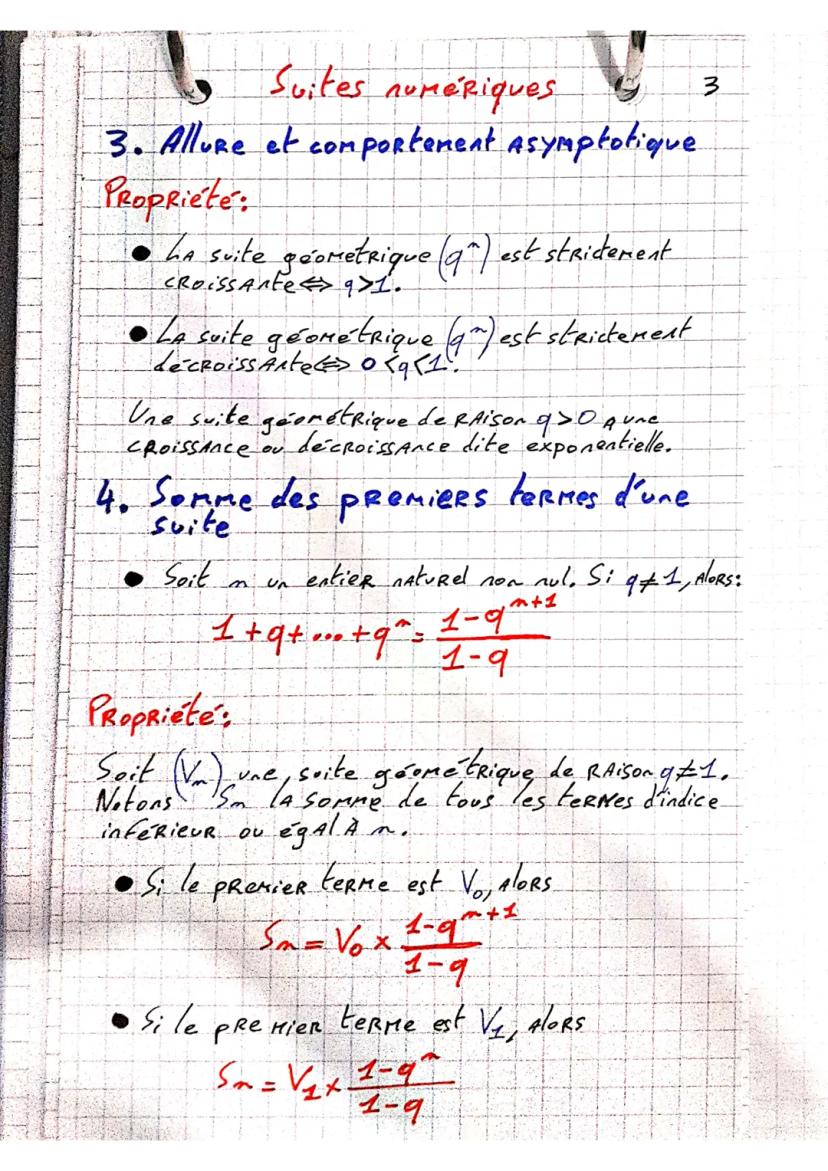 Suites numériques 3
3. Allure et comportement asymptotique
Propriété:
• La suite géometrique (qⁿ) est stridement
croissante ⇔ q>1.
• La suite géométrique (qⁿ) est strictement
décroissante ⇔ 0<q<1.
Une suite géométrique de raison q>0 a une
croissance ou décroissance dite exponentielle.
4. Somme des premiers termes d'une
suite
• Soit n un entier naturel non nul. Si q≠1, alors:
1+q+...+qⁿ = (1-qⁿ⁺¹)/(1-q)
Propriété:
Soit (Vₙ) une suite géométrique de raison q≠1.
Notons Sₙ la somme de tous les termes d'indice
inférieur ou égal à n.
• Si le premier terme est V₀, alors
Sₙ = V₀ × (1-qⁿ⁺¹)/(1-q)
• Si le premier terme est V₁, alors
Sₙ = V₁ × (1-qⁿ)/(1-q)